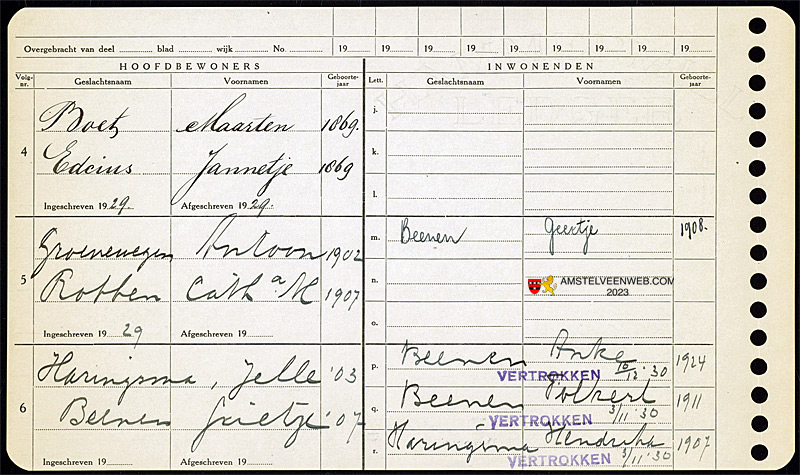 Overgebracht van deel blad wijk No. 19 19 19 19 19 19 19 19 19
HOOFDBEWONERS INWONENDEN
Volg-nr. Geslachtsnaam Voornamen Geboorte-jaar Lett. Geslachtsnaam Voornamen Geboorte-jaar
j.
Boet Maarten 1869.
4 k.
Edcius Jannetje 1869
l.
Ingeschreven 19 29. Afgeschreven 19 29.
Groenewegen Antoon 1902 m. Beenen Geertje 1908.
5 n. AMSTELVEENWEB.COM
2023
Robben Cath a M 1907
o.
Ingeschreven 19 29 Afgeschreven 19
Haringsma, Jelle '03 p. Beenen Anke 1924
VERTROKKEN 10/12 '30
6 q. Beenen Folkert 1911
Beenen Grietje '07 VERTROKKEN 3/11 '30
r. Haringsma Hendrika 1907
Ingeschreven 19 Afgeschreven 19 VERTROKKEN 3/11 '30